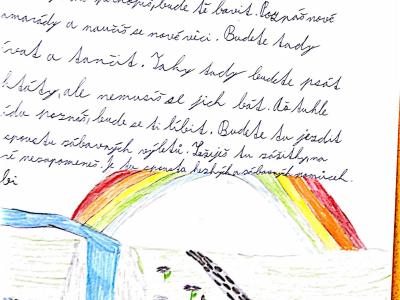 pochopíš, bude tě bavit. Poznáš nové
amarády a naučíš se nové věci. Budete tady
ívat a tančit. Taky tady budete psát
ktáty, ale nemusíš se jich bát. Až tuhle
ídu poznáš, bude se ti líbit. Budete tu jezdit
spoustu zábavných výletů. Zažiješ tu zážitky, na
ré nezapomeneš. Je tu spousta hezkých a zábavných
bi